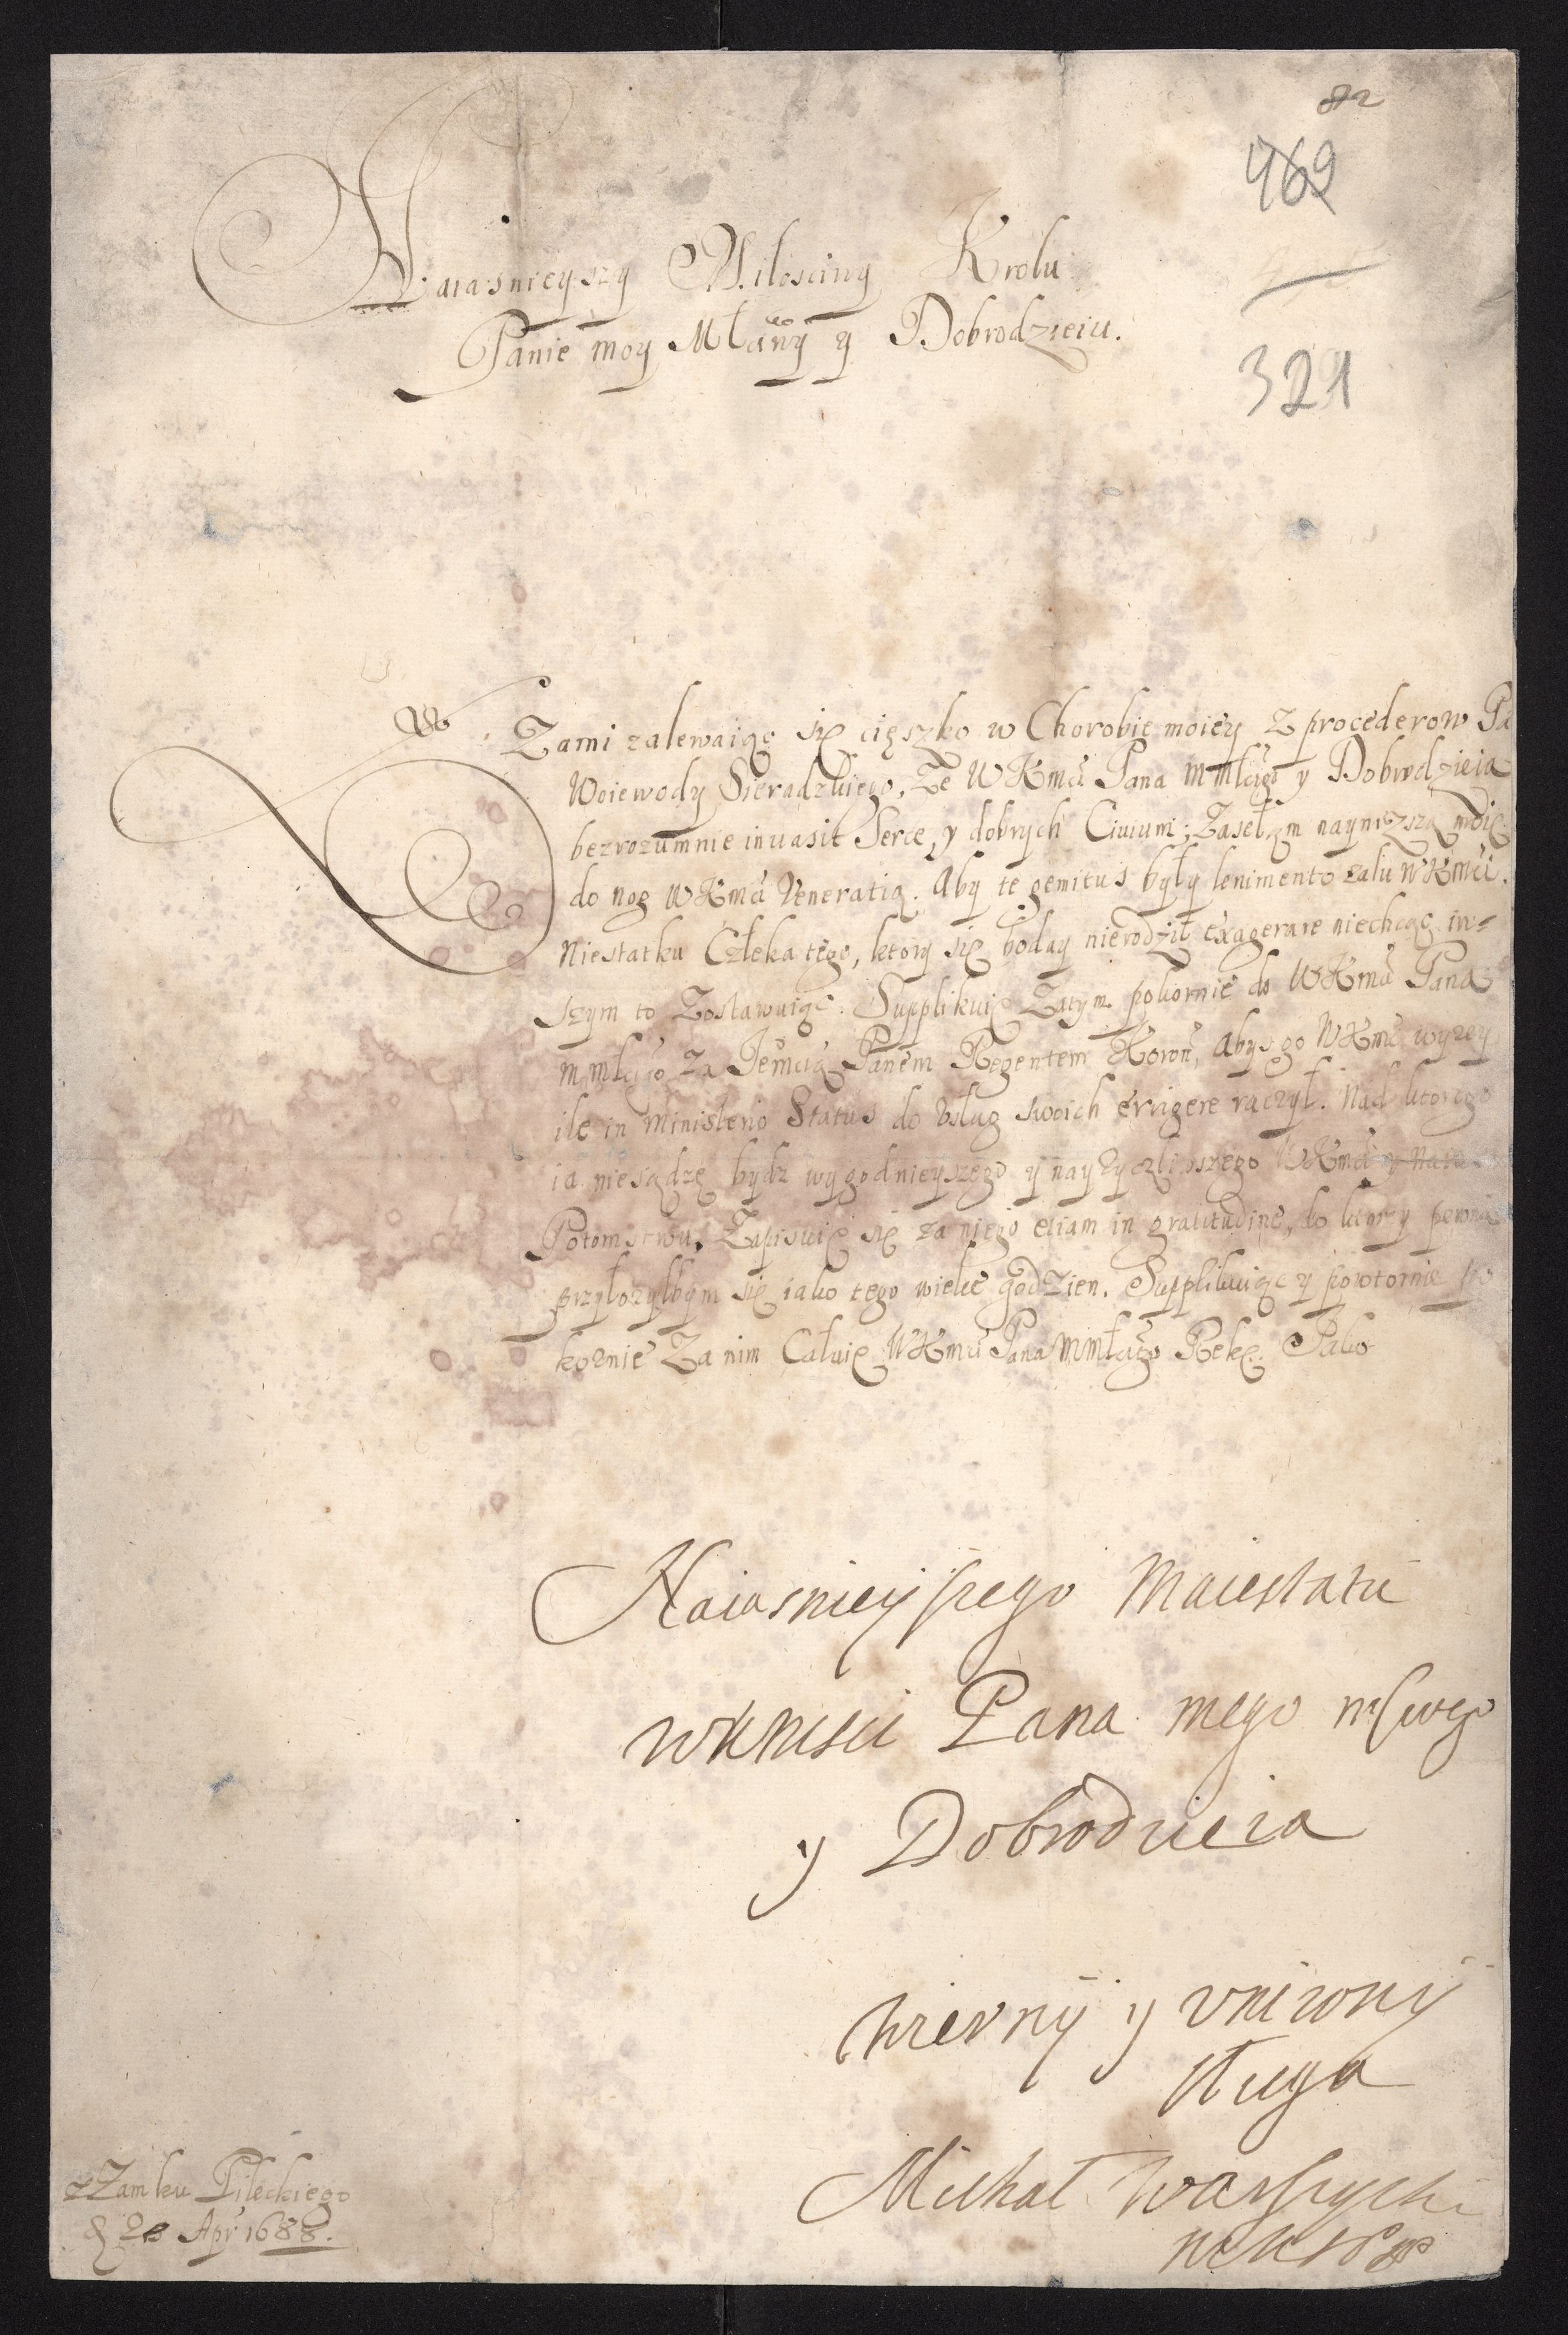 82
469
321
Naiasnieyszy Miłosciwy Krolu
Panie moy Młćiwy y Dobrodzieiu.
Łzami zalewaiąc się cięszko w Chorobie moiey z procederow Pa
Woiewody Sieradzkiego, Ze WKmći Pana mmłćigo y Dobrodzieia
bezrozumnie inuasit Serce, y dobrych Ciuium; Zasełam nayniższą moię
do nog WKmći Veneratią. Aby te gemitus były lenimento żalu WKmći.
Niestatku Człeka tego, ktory się boday nierodził exagerare niechcąc in-
szym to Zostawuiąc. Supplikuię Zatym pokornie do WKmći Pana
mmłćigo za Jemcią Panem Regentem Koron, Abys go WKmć wyzey
ile in Ministerio Status do Usług swoich errigere raczył. Nad ktorego
ia niesądzę bydz wygodnieyszego y nayżyczliwszego WKmći y
Potomstwu. Zapisuię się za niego etiam in gratitudine, do ktory pewnie
przyłozyłbym się iako tego wielce godzien. Supplikuiąc y powtornie po
kornie Za nim Całuię WKmći Pana Mmłćigo Rękę. Jako
Naiasnieyszego Maiestatu
WKMsci Pana mego msciwego
y Dobrodzieia
wierny y unizony
sługa
Michał Warszycki
z Zamku Pileckiego
d 20 Apr 1688.